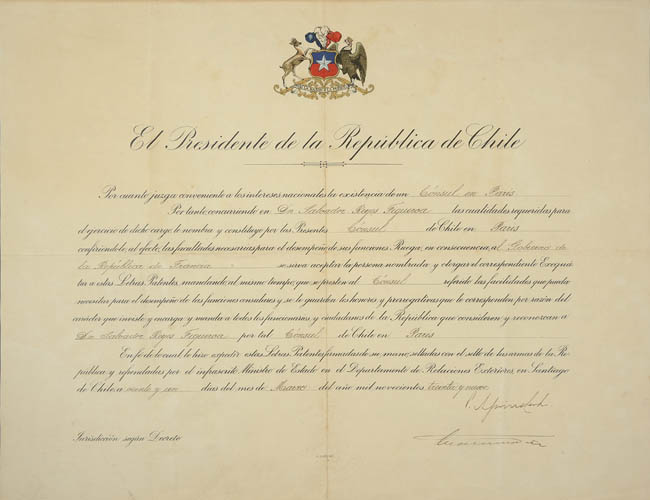 El Presidente de la República de Chile
Por cuanto juzga conveniente a los intereses nacionales la existencia de un Cónsul en Paris
Por tanto, concurriendo en Dn Salvador Reyes Figueroa las cualidades requeridas para
el ejercicio de dicho cargo, le nombra y constituye por las Presentes Cónsul de Chile en Paris
confiriéndole al efecto, las facultades necesarias para el desempeño de sus funciones. Ruega, en consecuencia, al Gobierno de
la República de Francia se sirva aceptar la persona nombrada y otorgar el correspondiente Exequa
tur a estas Letras Patentes, mandando al mismo tiempo, que se presten al Cónsul referido las facilidades que pueda
necesitar para el desempeño de las funciones consulares y se le guarden los honores y prerogativas que le corresponden por razón del
carácter que inviste y encarga y manda a todos los funcionarios y ciudadanos de la República que consideren y reconozcan a
Dn Salvador Reyes Figueroa por tal Cónsul de Chile en Paris
En fé de lo cual le hizo expedir estas Letras Patentes, firmadas de su mano, selladas con el sello de las armas de la Re
pública, y refrendadas por el infrascrito Ministro de Estado en el Departamento de Relaciones Exteriores, en Santiago
de Chile, a veinte y un días del mes de Marzo del año mil novecientos treinta y nueve
Jurisdicción según Decreto